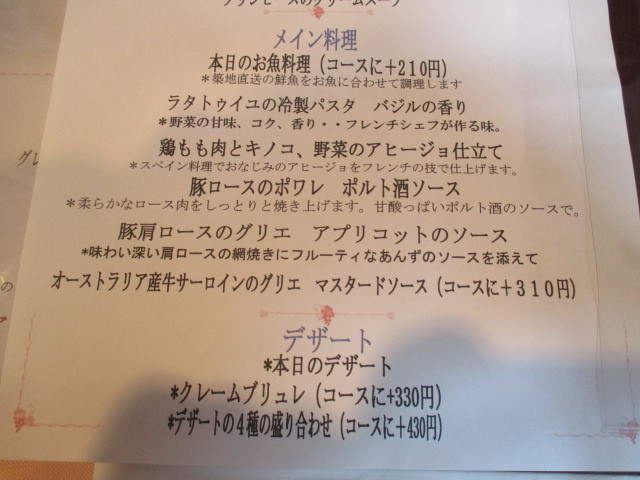 グリンピースのクリームスープ
メイン料理
本日のお魚料理（コースに＋210円）
＊築地直送の鮮魚をお魚に合わせて調理します
ラタトゥイユの冷製パスタ　バジルの香り
＊野菜の甘味、コク、香り・・フレンチシェフが作る味。
鶏もも肉とキノコ、野菜のアヒージョ仕立て
＊スペイン料理でおなじみのアヒージョをフレンチの技で仕上げます。
豚ロースのポワレ　ポルト酒ソース
＊柔らかなロース肉をしっとりと焼き上げます。甘酸っぱいポルト酒のソースで。
豚肩ロースのグリエ　アプリコットのソース
＊味わい深い肩ロースの網焼きにフルーティなあんずのソースを添えて
オーストラリア産牛サーロインのグリエ　マスタードソース（コースに＋310円）
デザート
＊本日のデザート
＊クレームブリュレ（コースに+330円）
＊デザートの４種の盛り合わせ（コースに＋430円）
グレ
の
ァ